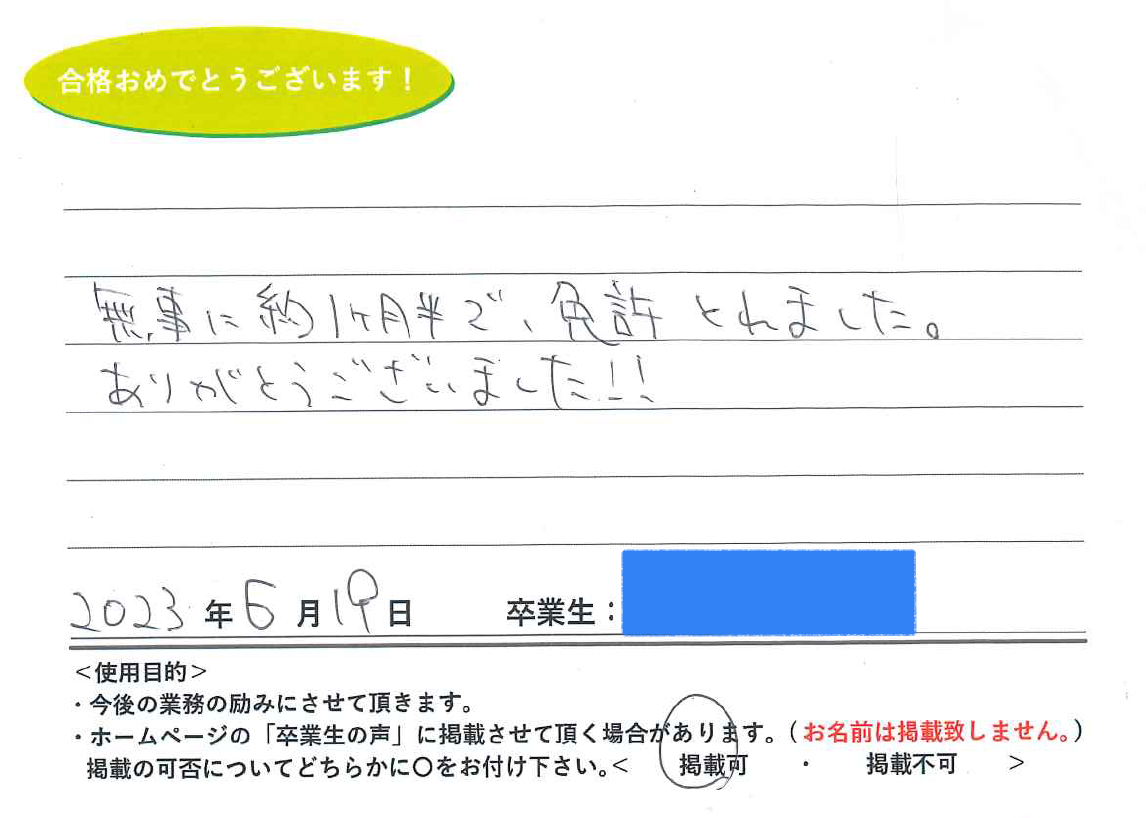 合格おめでとうございます！
無事に約1ヶ月半で、免許とれました。
ありがとうございました!!
2023年6月19日 卒業生：
＜使用目的＞
・今後の業務の励みにさせて頂きます。
・ホームページの「卒業生の声」に掲載させて頂く場合があります。（お名前は掲載致しません。）
掲載の可否についてどちらかに〇をお付け下さい。＜ 掲載可 ・ 掲載不可 ＞